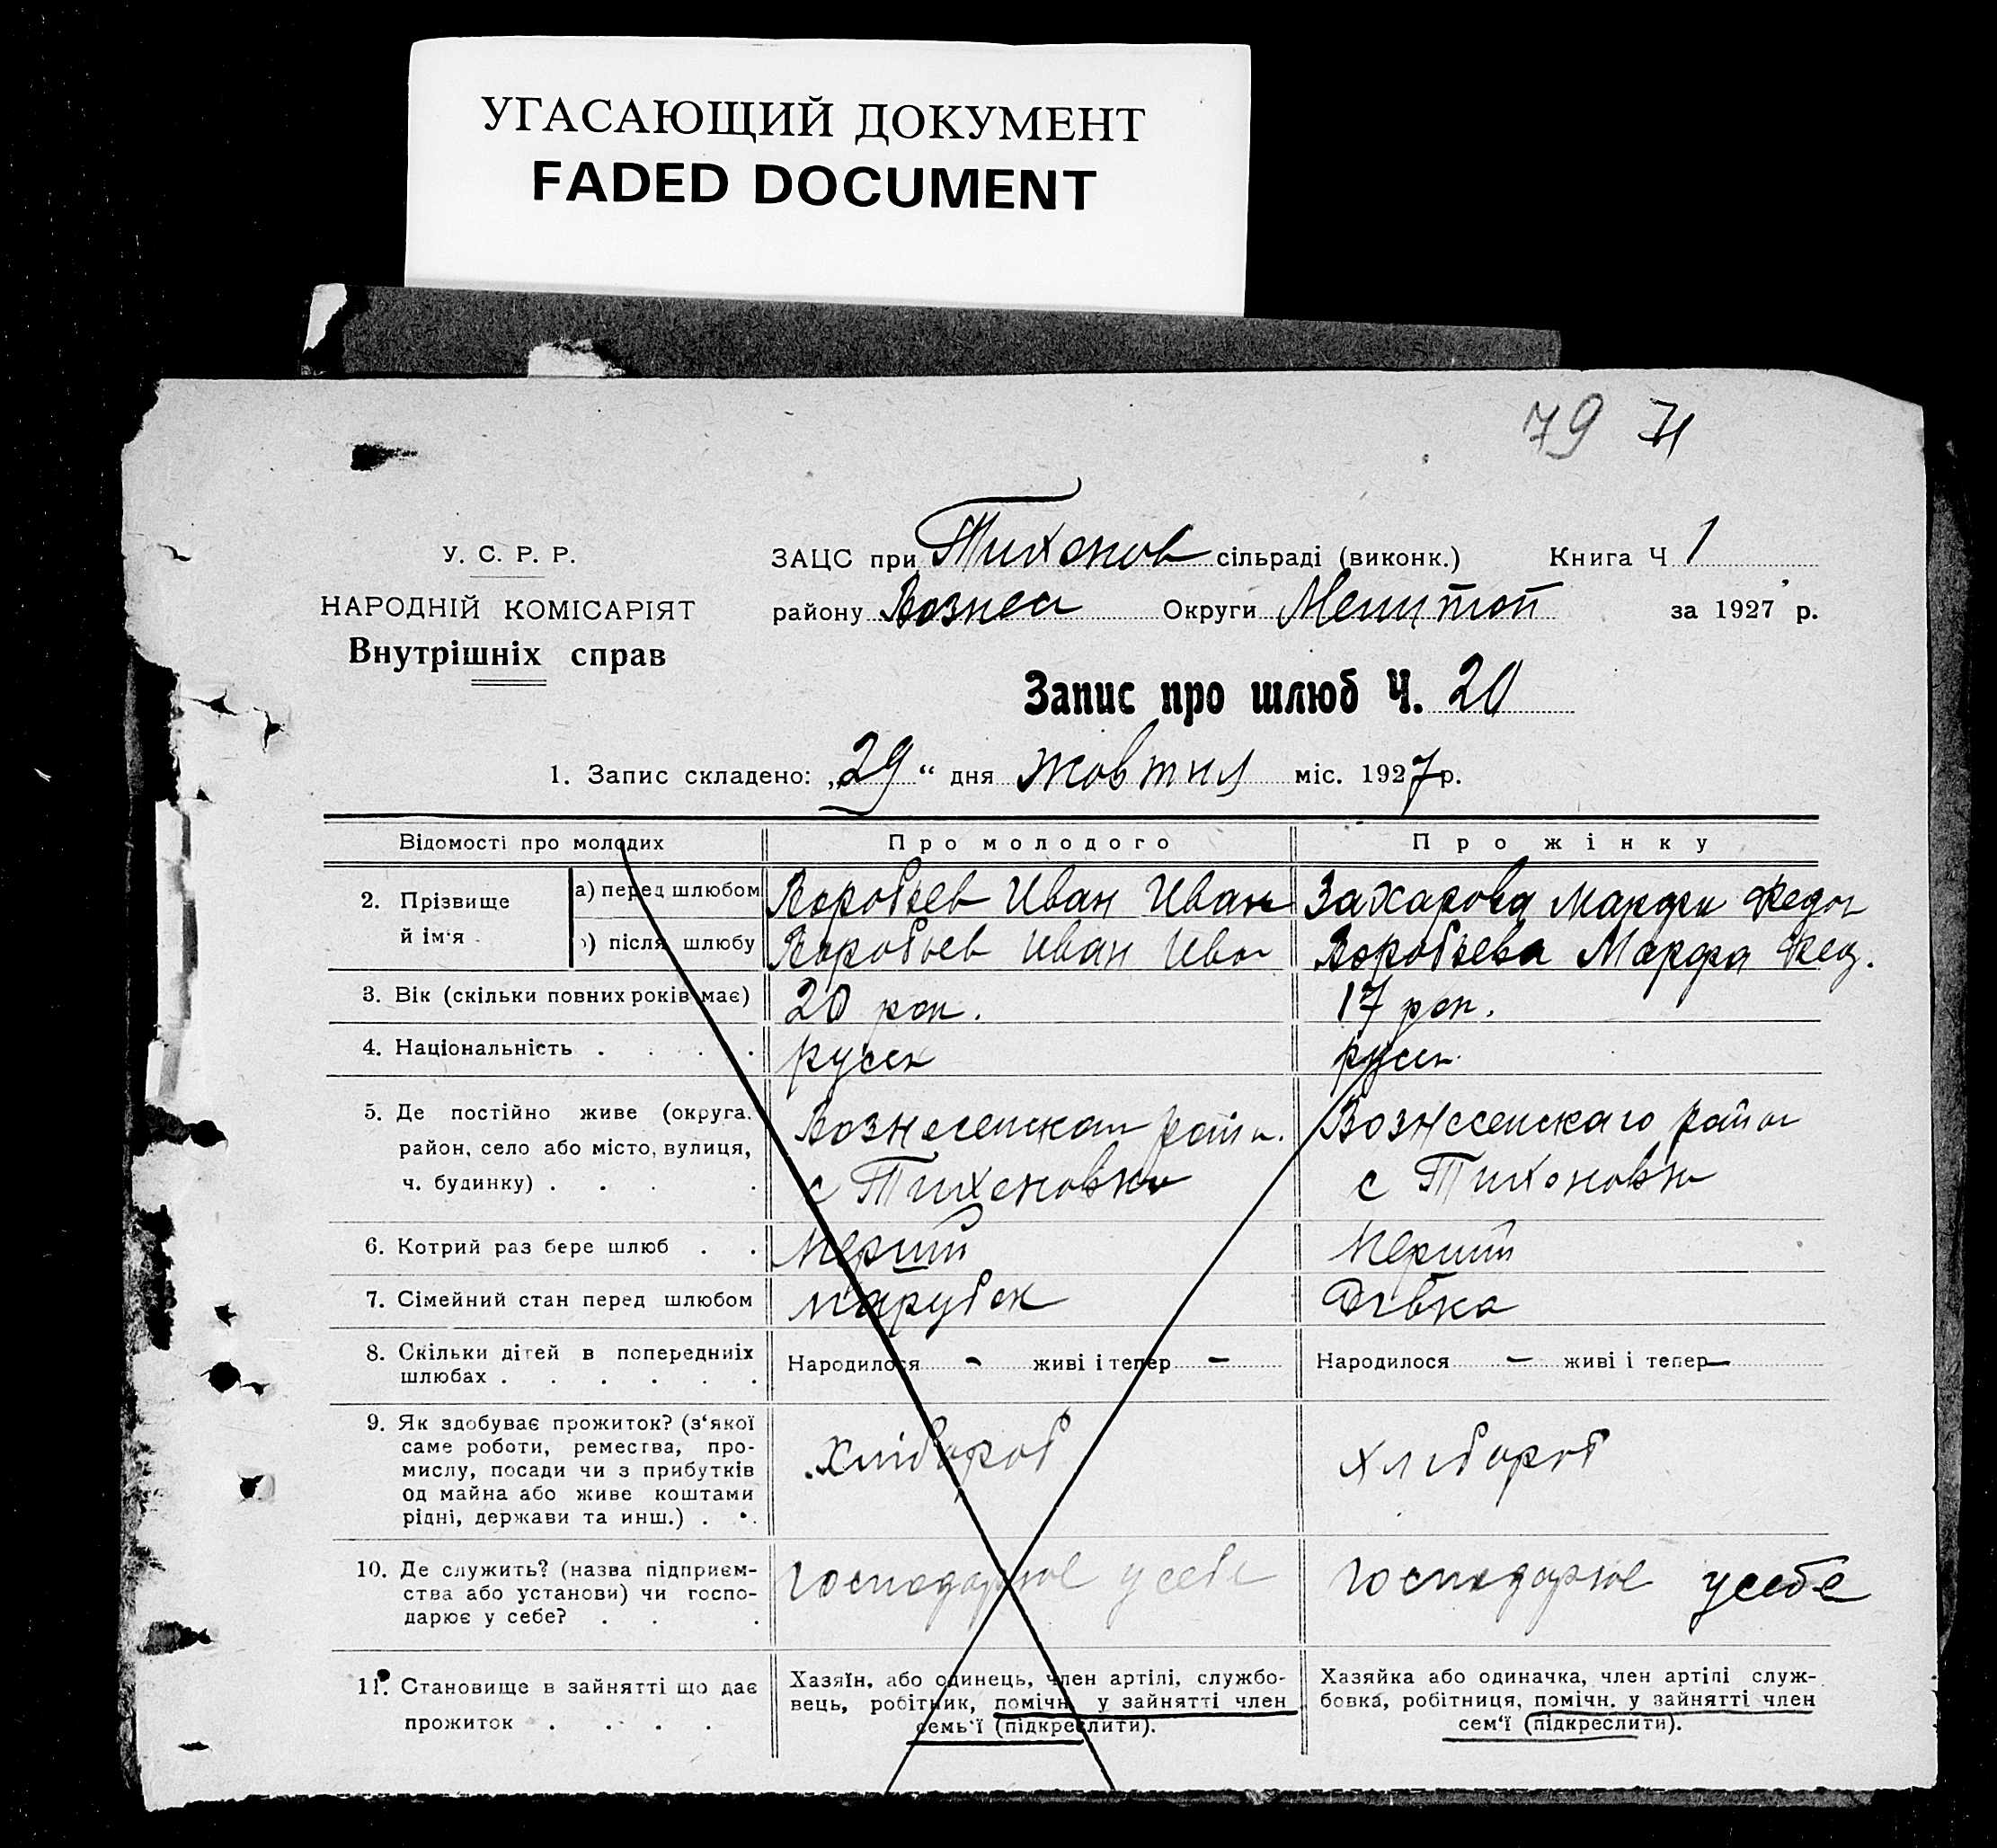 УГАСАЮЩИЙ ДОКУМЕНТ
FADED DOCUMENT
79
У. С. Р. Р.
НАРОДНІЙ КОМІСАРІЯТ
Внутрішніх справ
ЗАЦС при Тихонов сільраді (виконк.) Книга Ч 1
району Вознес Округи Мелитоп за 1927 р.
Запис про шлюб Ч. 20
1. Запис складено: „29“ дня жовтня міс. 1927 р.
Відомості про молодих Про молодого Про жінку
2. Прізвище й ім‘я
а) перед шлюбом Воробьев Иван Иван Захарова Марфа Федог
б) після шлюбу Воробьев Иван Иван Воробьева Марфа Фед.
3. Вік (скільки повних років має) 20 рок. 17 рок.
4. Національність . . . . русск русск
5. Де постійно живе (округа. район, село або місто, вулиця, ч. будинку) . . . .
Вознесенскаг район. Вознесенскаго район
с Тихоновка с Тихоновка
6. Котрий раз бере шлюб . . Перший Перший
7. Сімейний стан перед шлюбом парубок Дівка
8. Скільки дітей в попередниіх шлюбах . . . . . .
Народилося - живі і тепер - Народилося - живі і тепер -
9. Як здобуває прожиток? (з‘якої
саме роботи, ремества, про-
мислу, посади чи з прибутків
од майна або живе коштами
рідні, держави та инш.) . .
Хлібороб хлібороб
10. Де служить? (назва підприєм-
ства або установи) чи госпо-
дарює у себе? . . .
Господарює у себе Господарює у себе
11. Становище в зайнятті що дає
прожиток . . . .
Хазяїн, або одинець, член артілі, службо-
вець, робітник, помічн. у зайнятті член
семь‘ї (підкреслити).
Хазяйка або одиначка, член артілі служ-
бовка, робітниця, помічн. у зайнятті член
сем‘ї (підкреслити).